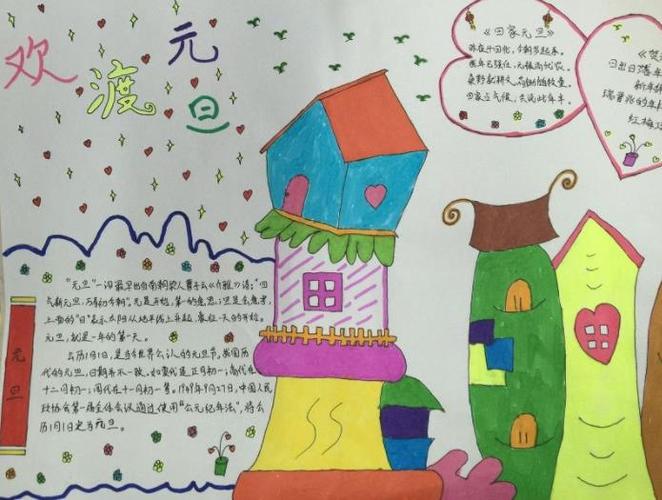 欢渡元旦
《田家元旦》
昨夜斗回北，今朝岁起东。
我年已强仕，无禄尚忧农。
桑野就耕父，荷锄随牧童。
田家占气候，共说此年丰。
《贺
日出日落
新年
瑞
红梅
元旦
"元旦"一词最早出自南朝梁人萧子云《介雅》诗："四
气新元旦，万寿初今朝"。元是开始，第一的意思；旦是会意字，
上面的"日"表示太阳从地平线上升起，象征一天的开始。
元旦，就是一年的第一天。
公历1月1日，是当今世界公认的元旦节。我国历
代的元旦，日期并不一致。如夏代是正月初一；商代在
十二月初一；周代在十一月初一等。1949年9月27日，中国人民
政协会第一届全体会议通过使用"公元纪年法"，将公
历1月1日定为元旦。